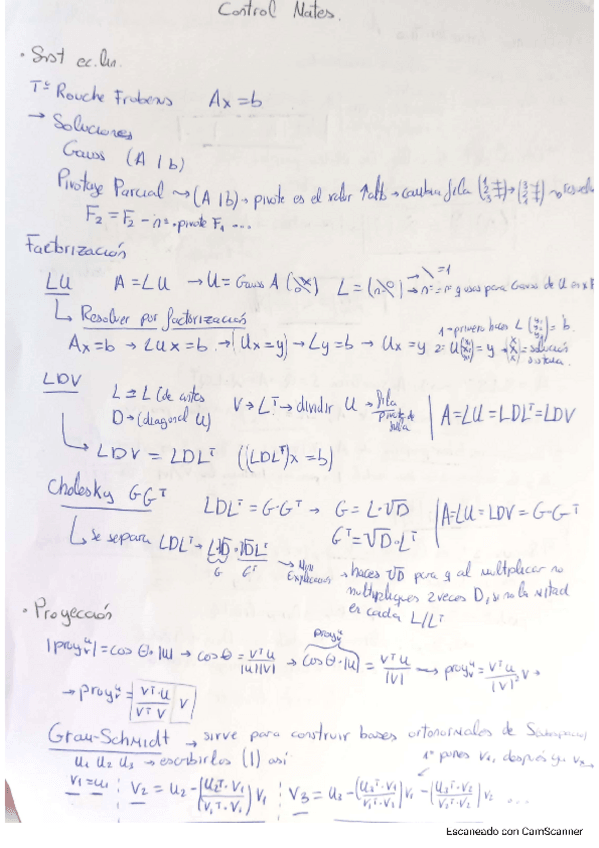 Control Mates.
· Sist ec. lin.
Tª Rouche Frobenius Ax = b
→ Soluciones
Gauss (A | b)
Pivotaje Parcial ⇝ (A | b) → pivote es el valor ↑ → cambia fila (1 2 3 ...) → (3 2 1 ...) → resuelve
F₂ = F₂ - nº · pivote F₁ ...
Factorización
LU A = LU → U = Gauss A L = → \ = 1 → nº = nº q usas para Gauss de U
↳ Resolver por factorización
1 → primero haces L (y₁ y₂ y₃) = b.
Ax = b → LUx = b → |Ux = y| → Ly = b → Ux = y 2 = U (x₁ x₂ x₃) = y → (x x x) = solución sistema.
LDV L = L (de antes V → Lᵀ → dividir U → fila / pivote de fila | A = LU = LDLᵀ = LDV
D → (diagonal U)
↳ LDV = LDLᵀ ((LDLᵀ)x = b)
Cholesky GGᵀ LDLᵀ = G·Gᵀ → G = L·√D | A = LU = LDV = G·Gᵀ
Gᵀ = √D · Lᵀ
↳ se separa LDLᵀ → L√D · √DLᵀ
G Gᵀ → Mini Explicación → haces √D para q al multiplicar no
multipliques 2 veces D, si no la mitad
en cada L/Lᵀ
· Proyección
|proyᵥᵘ| = cos θ · |u| → cos θ = vᵀu / |u||v| → cos θ · |u| = vᵀu / |v| → proyᵥᵘ = vᵀu / |v|² v →
proyᵥᵘ
→ proyᵥᵘ = vᵀ·u / vᵀv v
Gram-Schmidt → sirve para construir bases ortonormales de
u₁ u₂ u₃ → escribirlos (1) así: 1º pones v₁, después v₂
v₁ = u₁ ⋮ v₂ = u₂ - (u₂ᵀ·v₁ / v₁ᵀ·v₁) v₁ ⋮ v₃ = u₃ - (u₃ᵀ·v₁ / v₁ᵀ·v₁) v₁ - (u₃ᵀ·v₂ / v₂ᵀ·v₂) v₂ ...
Escaneado con CamScanner